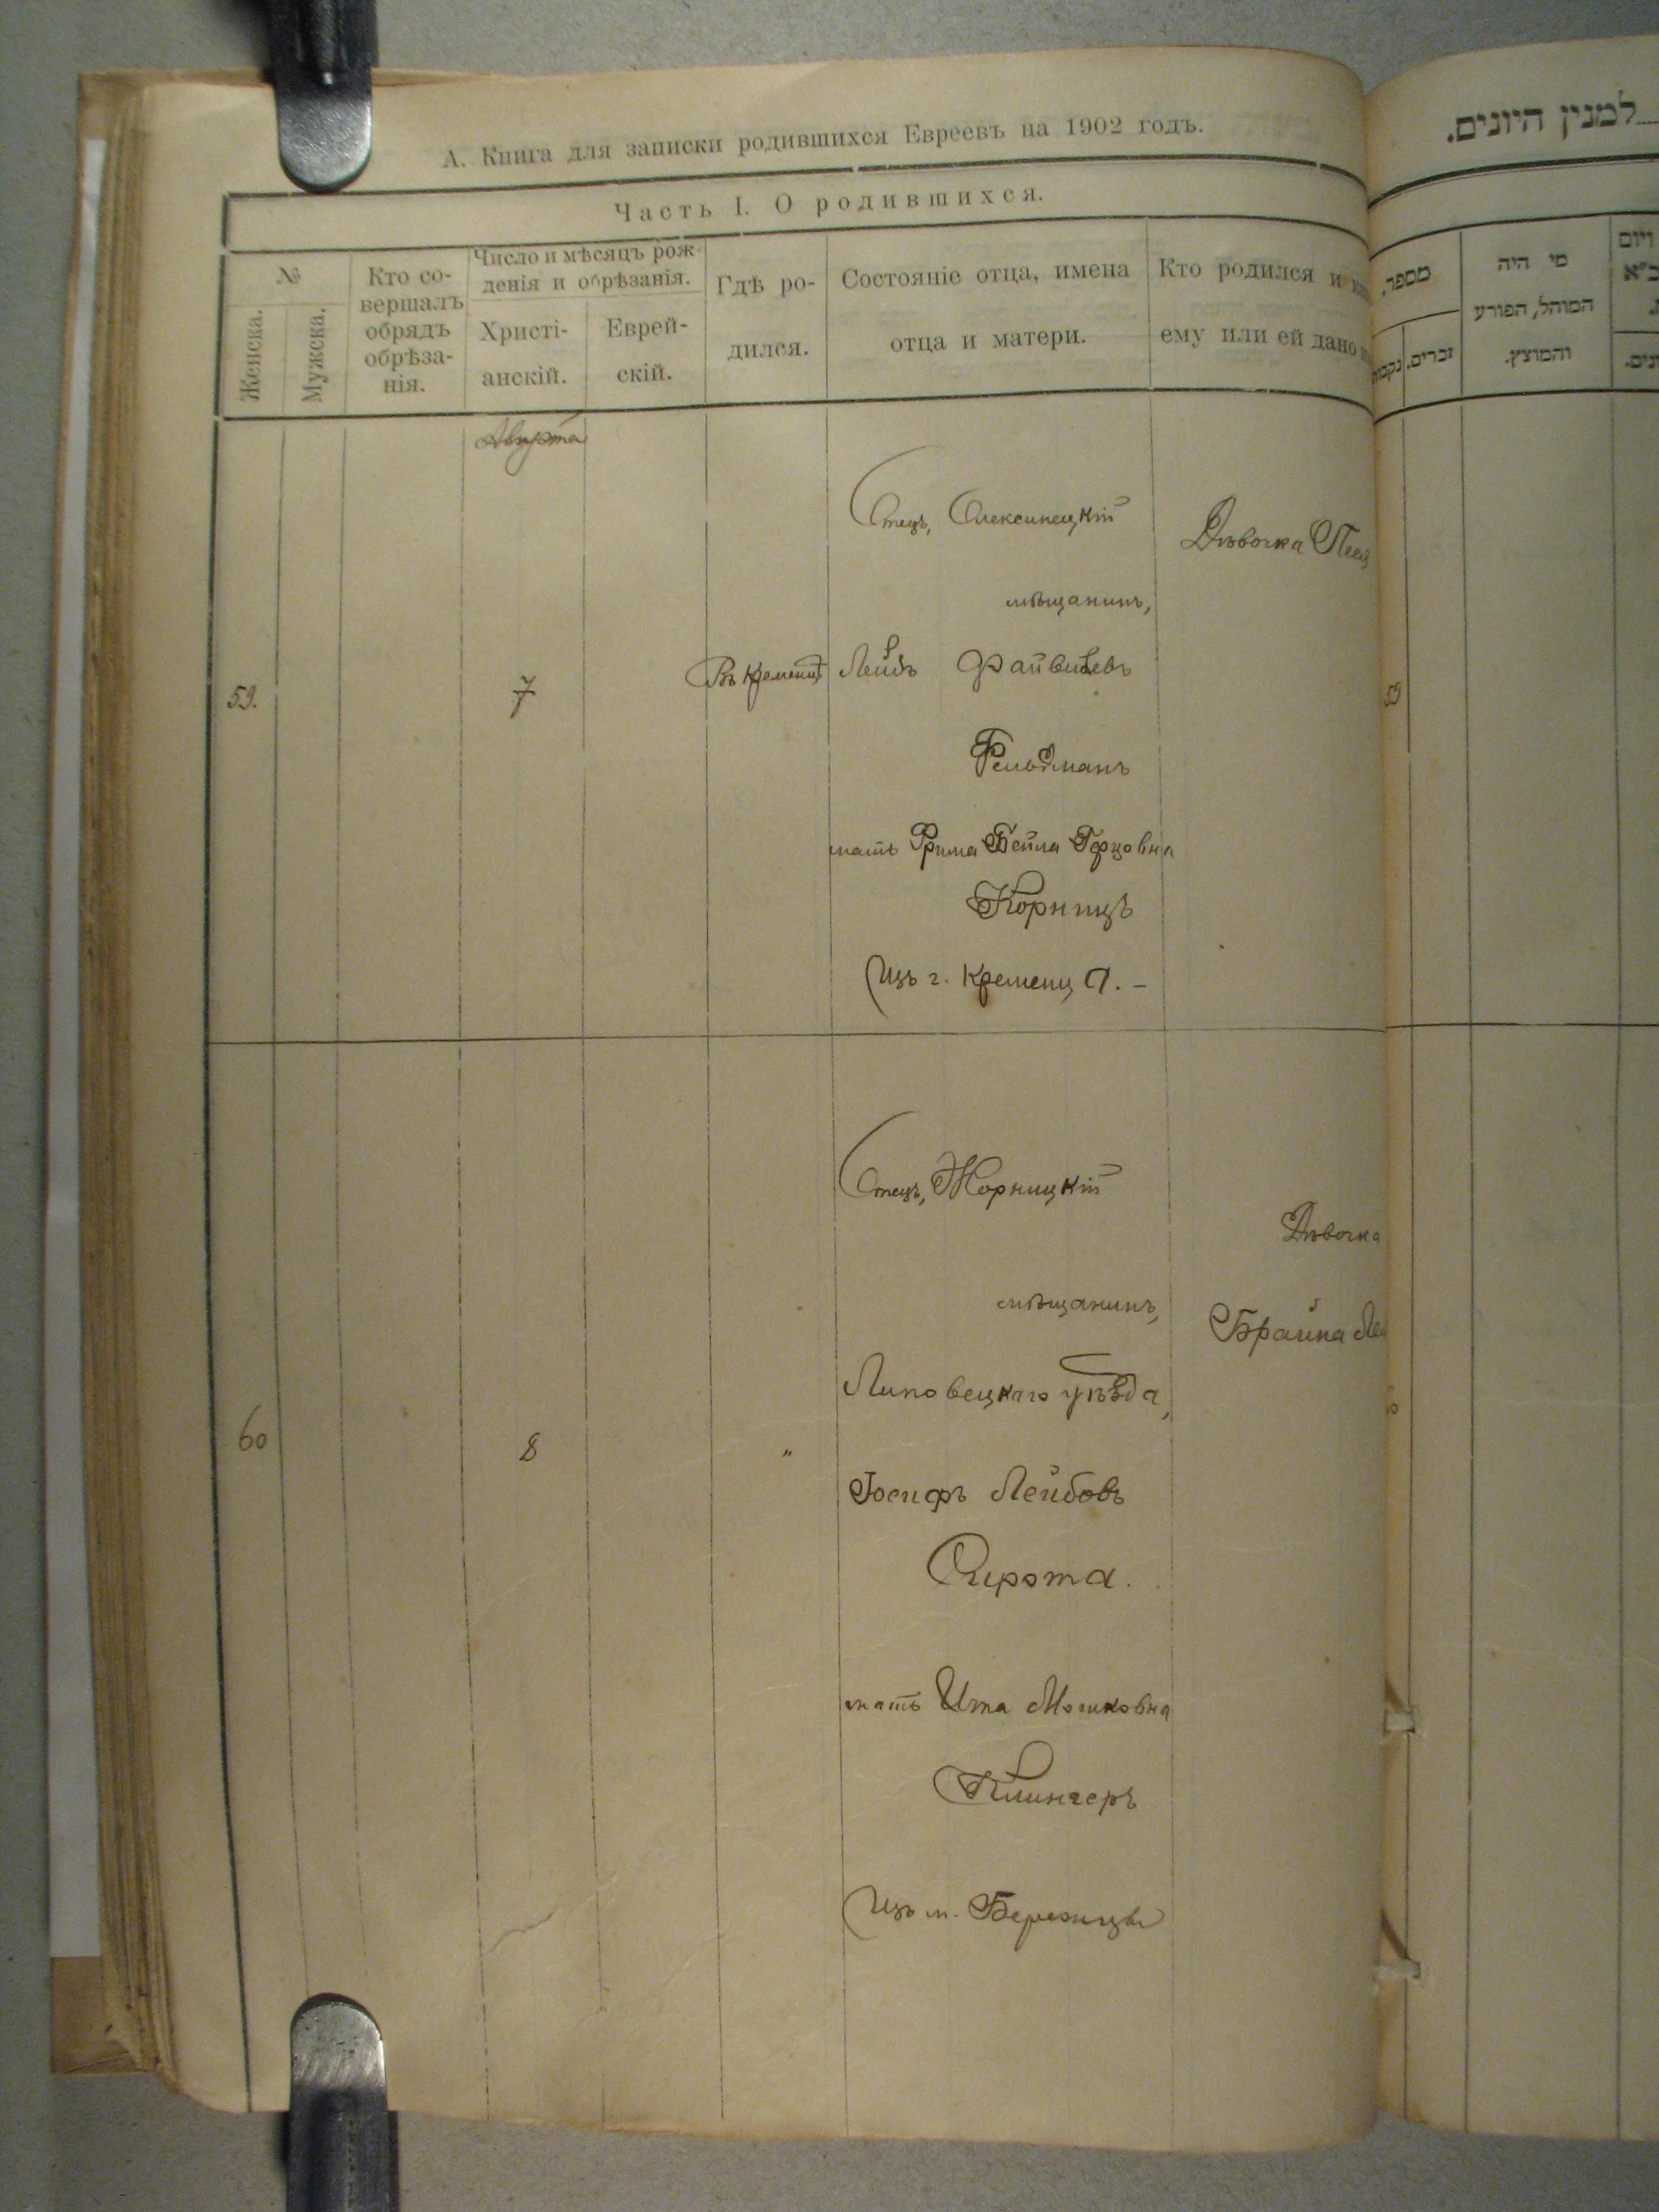 А. Книга для записки родившихся Евреевъ на 1902 годъ.
Часть I. О родившихся.
№
Женска.
Мужска.
Кто со-
вершалъ
обрядъ
обрѣза-
нія.
Число и мѣсяцъ рож-
денія и обрѣзанія.
Христі-
анскій.
Еврей-
скій.
Гдѣ ро-
дился.
Состояніе отца, имена
отца и матери.
Кто родился и
ему или ей дано
Августа
59.
7
Въ Кременцѣ
Отецъ, Олексинецкій
мѣщанинъ,
Лейбъ Файвишевъ
Фельдманъ
мать Фрима Бейла Герцовна
Корницъ
Изъ г. Кременца. –
Дѣвочка Песя
60
8
"
Отецъ, Жорницкій
мѣщанинъ,
Липовецкаго уѣзда,
Іосифъ Лейбовъ
Сирота.
мать Ита Мошковна
Клингеръ
Изъ м. Бережцы
Дѣвочка
Брайна
למנין היונים.
מספר,
נקבות
זכרים.
מי היה
המוהל, הפורע
והמוצץ.
ויום
59